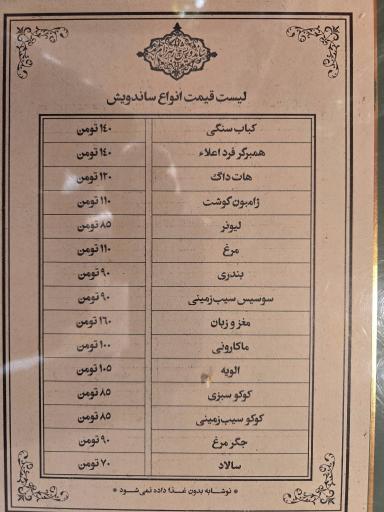 لیست قیمت انواع ساندویش
کباب سنگی ۱۴۰ تومن
همبرگر فرد اعلاء ۱۴۰ تومن
هات داگ ۱۲۰ تومن
ژامبون گوشت ۱۱۰ تومن
لیونر ۸۵ تومن
مرغ ۱۱۰ تومن
بندری ۹۰ تومن
سوسیس سیب‌زمینی ۹۰ تومن
مغز و زبان ۱۶۰ تومن
ماکارونی ۱۰۰ تومن
الویه ۱۰۵ تومن
کوکو سبزی ۸۵ تومن
کوکو سیب‌زمینی ۸۵ تومن
جگر مرغ ۹۰ تومن
سالاد ۷۰ تومن
* نوشابه بدون غذا داده نمی‌شود *